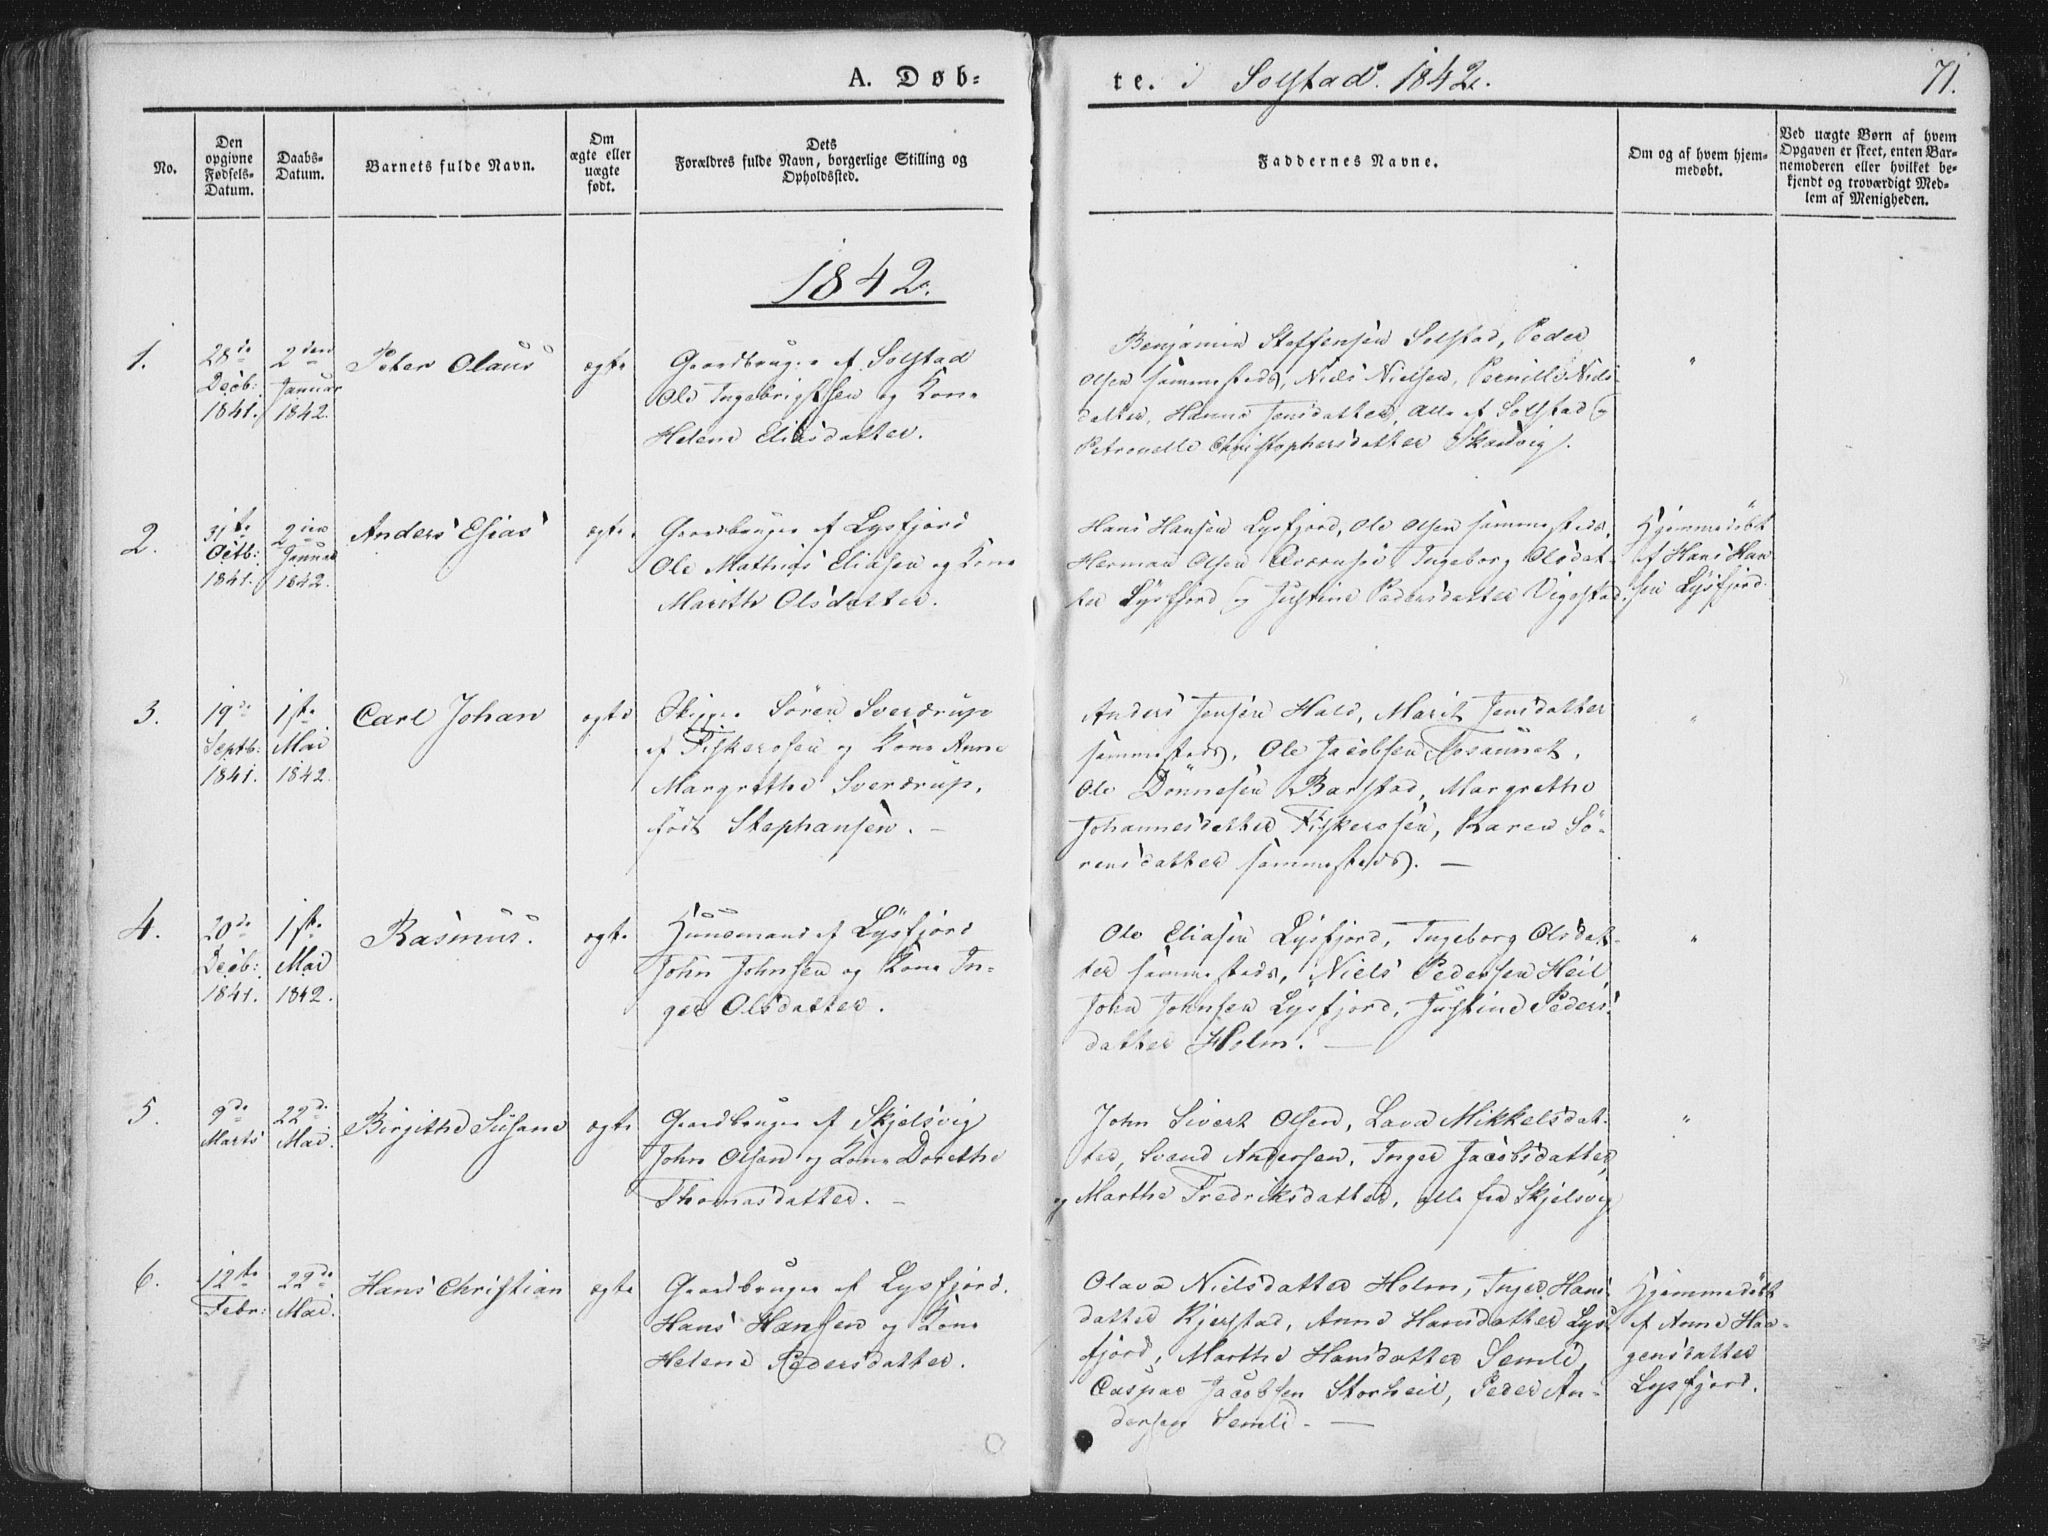 A. Døb-
te. i Solstad. 1842.
71.
No.
Den opgivne Fødsels-Datum.
Daabs-Datum.
Barnets fulde Navn.
Om ægte eller uægte født.
Dets Forældres fulde Navn, borgerlige Stilling og Opholdssted.
Faddernes Navne.
Om og af hvem hjemmedøbt.
Ved uægte Børn af hvem Opgaven er skeet, enten Barnemoderen eller hvilket bekjendt og troværdigt Medlem af Menigheden.
1842.
1.
28de
Decb:
1841.
2den
Januar
1842.
Peter Olaus
ægte
Gaardbruger af Solstad
Ole Ingebrigtsen og Kone
Helene Eliasdatter.
Benjamin Steffensen Solstad, Peder
Olsen sammesteds, Niels Nielsen, Pernille Niels-
datter, Hanne Jensdatter, alle af Solstad og
Petronelle Christophersdatter Skarvig.
"
2.
31te
Octb:
1841.
2den
Januar
1842.
Anders Esias
ægte.
Gaardbruger af Lysfjord
Ole Mathias Eliasen og Kone
Marith Olsdatter.
Hans Hansen Lysfjord, Ole Olsen sammesteds,
Herman Olsen Ingeborg Olsdat-
ter Lysfjord og Justine Pedersdatter Vigestad.
Hjemmedøbt
af Hans Han
sen Lysfjord.
3.
19de
Septb:
1841.
1ste
Mai
1842.
Carl Johan
ægte
Skipper Sören Sverdrup
af Fiskerosen og Kone Anne
Margrethe Sverdrup,
født Stephansen. —
Anders Jensen Hald, Marit Jensdatter
sammesteds, Ole Jacobsen Rosaunet,
Ole Dönnesen Barstad, Margrethe
Johannesdatter Fiskerosen, Karen Sö-
rensdatter sammesteds. —
"
4.
20de
Decb:
1841.
1ste
Mai
1842.
Rasmus.
ægte
Huusmand af Lysfjord
John Johnsen og Kone In-
ger Olsdatter.
Ole Eliasen Lysfjord, Ingeborg Olsdat-
ter sammesteds, Niels Pedersen Heil
John Johnsen Lysfjord, Justine Peders-
datter Holm. —
"
5.
9de
Marts
22de
Mai.
Birgithe Susane
ægte
Gaardbruger af Skjelsvig
John Olsen og Kone Dorethe
Thomasdatter. —
John Sivert Olsen, Lava Mikkelsdat-
ter, Svend Andersen, Inger Jacobsdatter,
og Marthe Fredriksdatter, alle fra Skjelsvig
"
6.
12te
Febr:
22de
Mai.
Hans Christian
ægte
Gaardbruger af Lysfjord.
Hans Hansen og Kone
Helene Pedersdatter.
Olava Nielsdatter Holm, Inger Hans-
datter Kjerstad, Anne Hansdatter Lys-
fjord, Marthe Hansdatter Semli,
Caspar Jacobsen Storheil, Peder An-
dersen Semli. —
Hjemmedøbt
af Anne Haa-
gensdatter
Lysfjord.